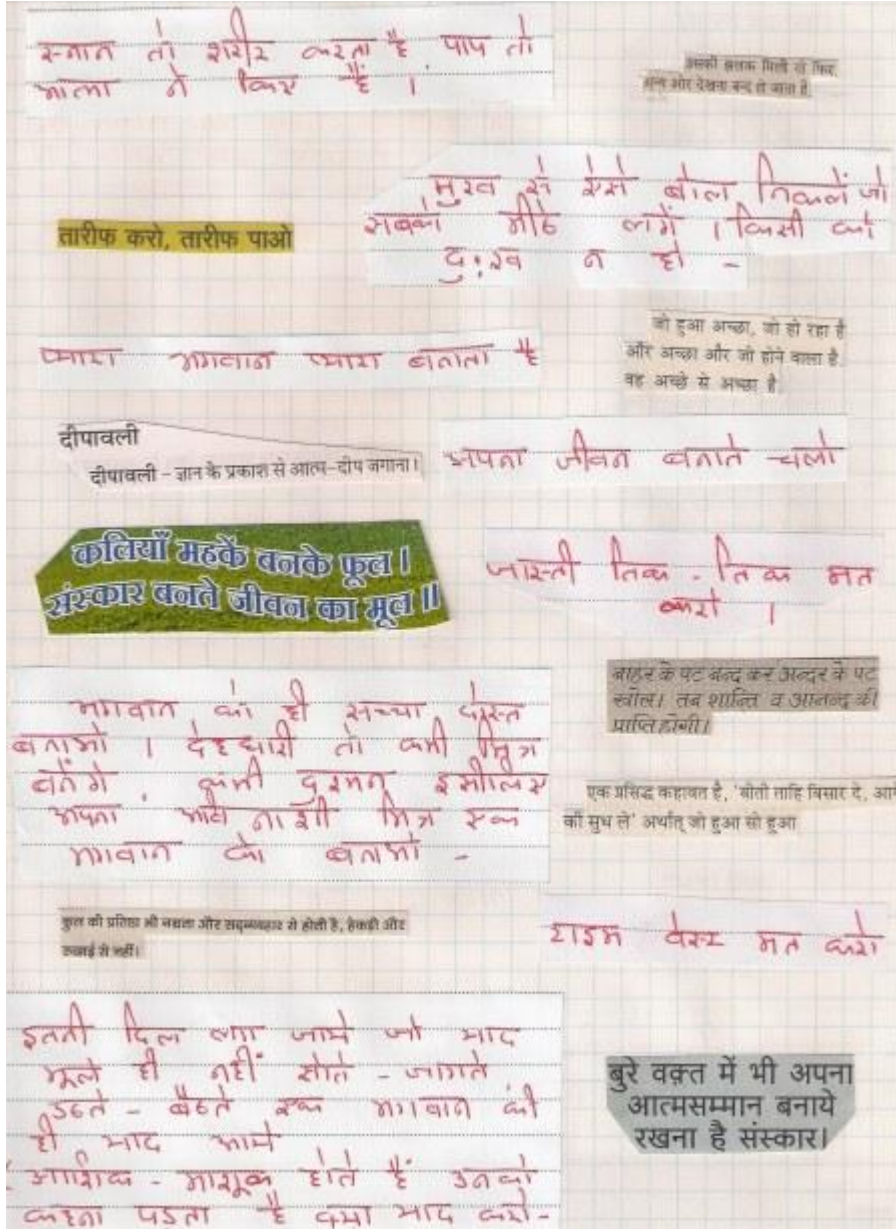 स्नान तो शरीर करता है पाप तो
आत्मा ने किए हैं ।
उसकी झलक मिली तो फिर
अन्य ओर देखना बन्द हो जाता है
मुख से ऐसे बोल निकलें जो
सबको मीठे लगें । किसी को
दुःख न हो -
तारीफ करो, तारीफ पाओ
जो हुआ अच्छा, जो हो रहा है
और अच्छा और जो होने वाला है
वह अच्छे से अच्छा है
प्यारा भगवान प्यारा बनाता है
दीपावली
दीपावली – ज्ञान के प्रकाश से आत्म-दीप जगाना।
अपना जीवन बनाते चलो
कलियाँ महकें बनके फूल ।
संस्कार बनते जीवन का मूल ॥
जास्ती तिक - तिक मत
करो ।
बाहर के पट बन्द कर अन्दर के पट
खोल। तब शान्ति व आनन्द की
प्राप्ति होगी।
भगवान को ही सच्चा दोस्त
बनाओ । देहधारी तो कभी मित्र
बनेंगे कभी दुश्मन इसीलिए
अपना अविनाशी मित्र एक
भगवान को बनाओ -
एक प्रसिद्ध कहावत है, 'बीती ताहि बिसार दे, आगे
की सुध ले' अर्थात् जो हुआ सो हुआ
कुल की प्रतिष्ठा भी नम्रता और सद्व्यवहार से होती है, हेकड़ी और
रुखाई से नहीं।
टाइम वेस्ट मत करो
इतनी दिल लग जाये जो याद
भूले ही नहीं सोते - जागते
उठते - बैठते एक भगवान की
ही याद आये
आशिक - माशूक होते हैं उनको
कहना पडता है क्या याद करो -
बुरे वक़्त में भी अपना
आत्मसम्मान बनाये
रखना है संस्कार।